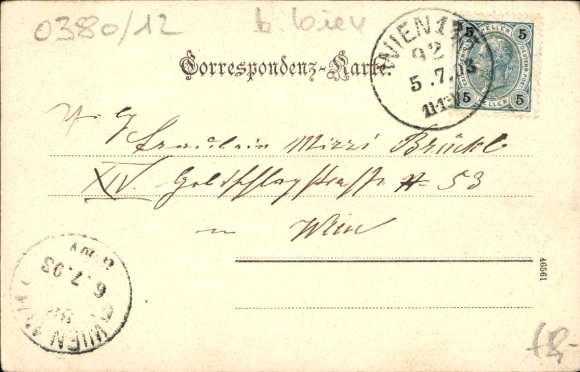 0380/12
b. Wien
WIEN 1
92
5.7.03
5 HELLER 5
5 HELLER 5
Correspondenz-Karte.
Fräulein Mizzi Brückl
XIV. Goldschlagstraße # 53
in Wien
46561
WIEN
6.7.03